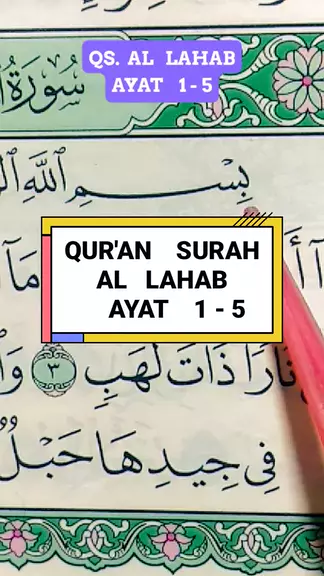 QS. AL LAHAB
AYAT 1-5
سُورَةُ
بِسْمِ ٱللَّهِ
QUR'AN SURAH
AL LAHAB
AYAT 1 - 5
نَارًا ذَاتَ لَهَبٍ ٣
فِى جِيدِهَا حَبْلٌ